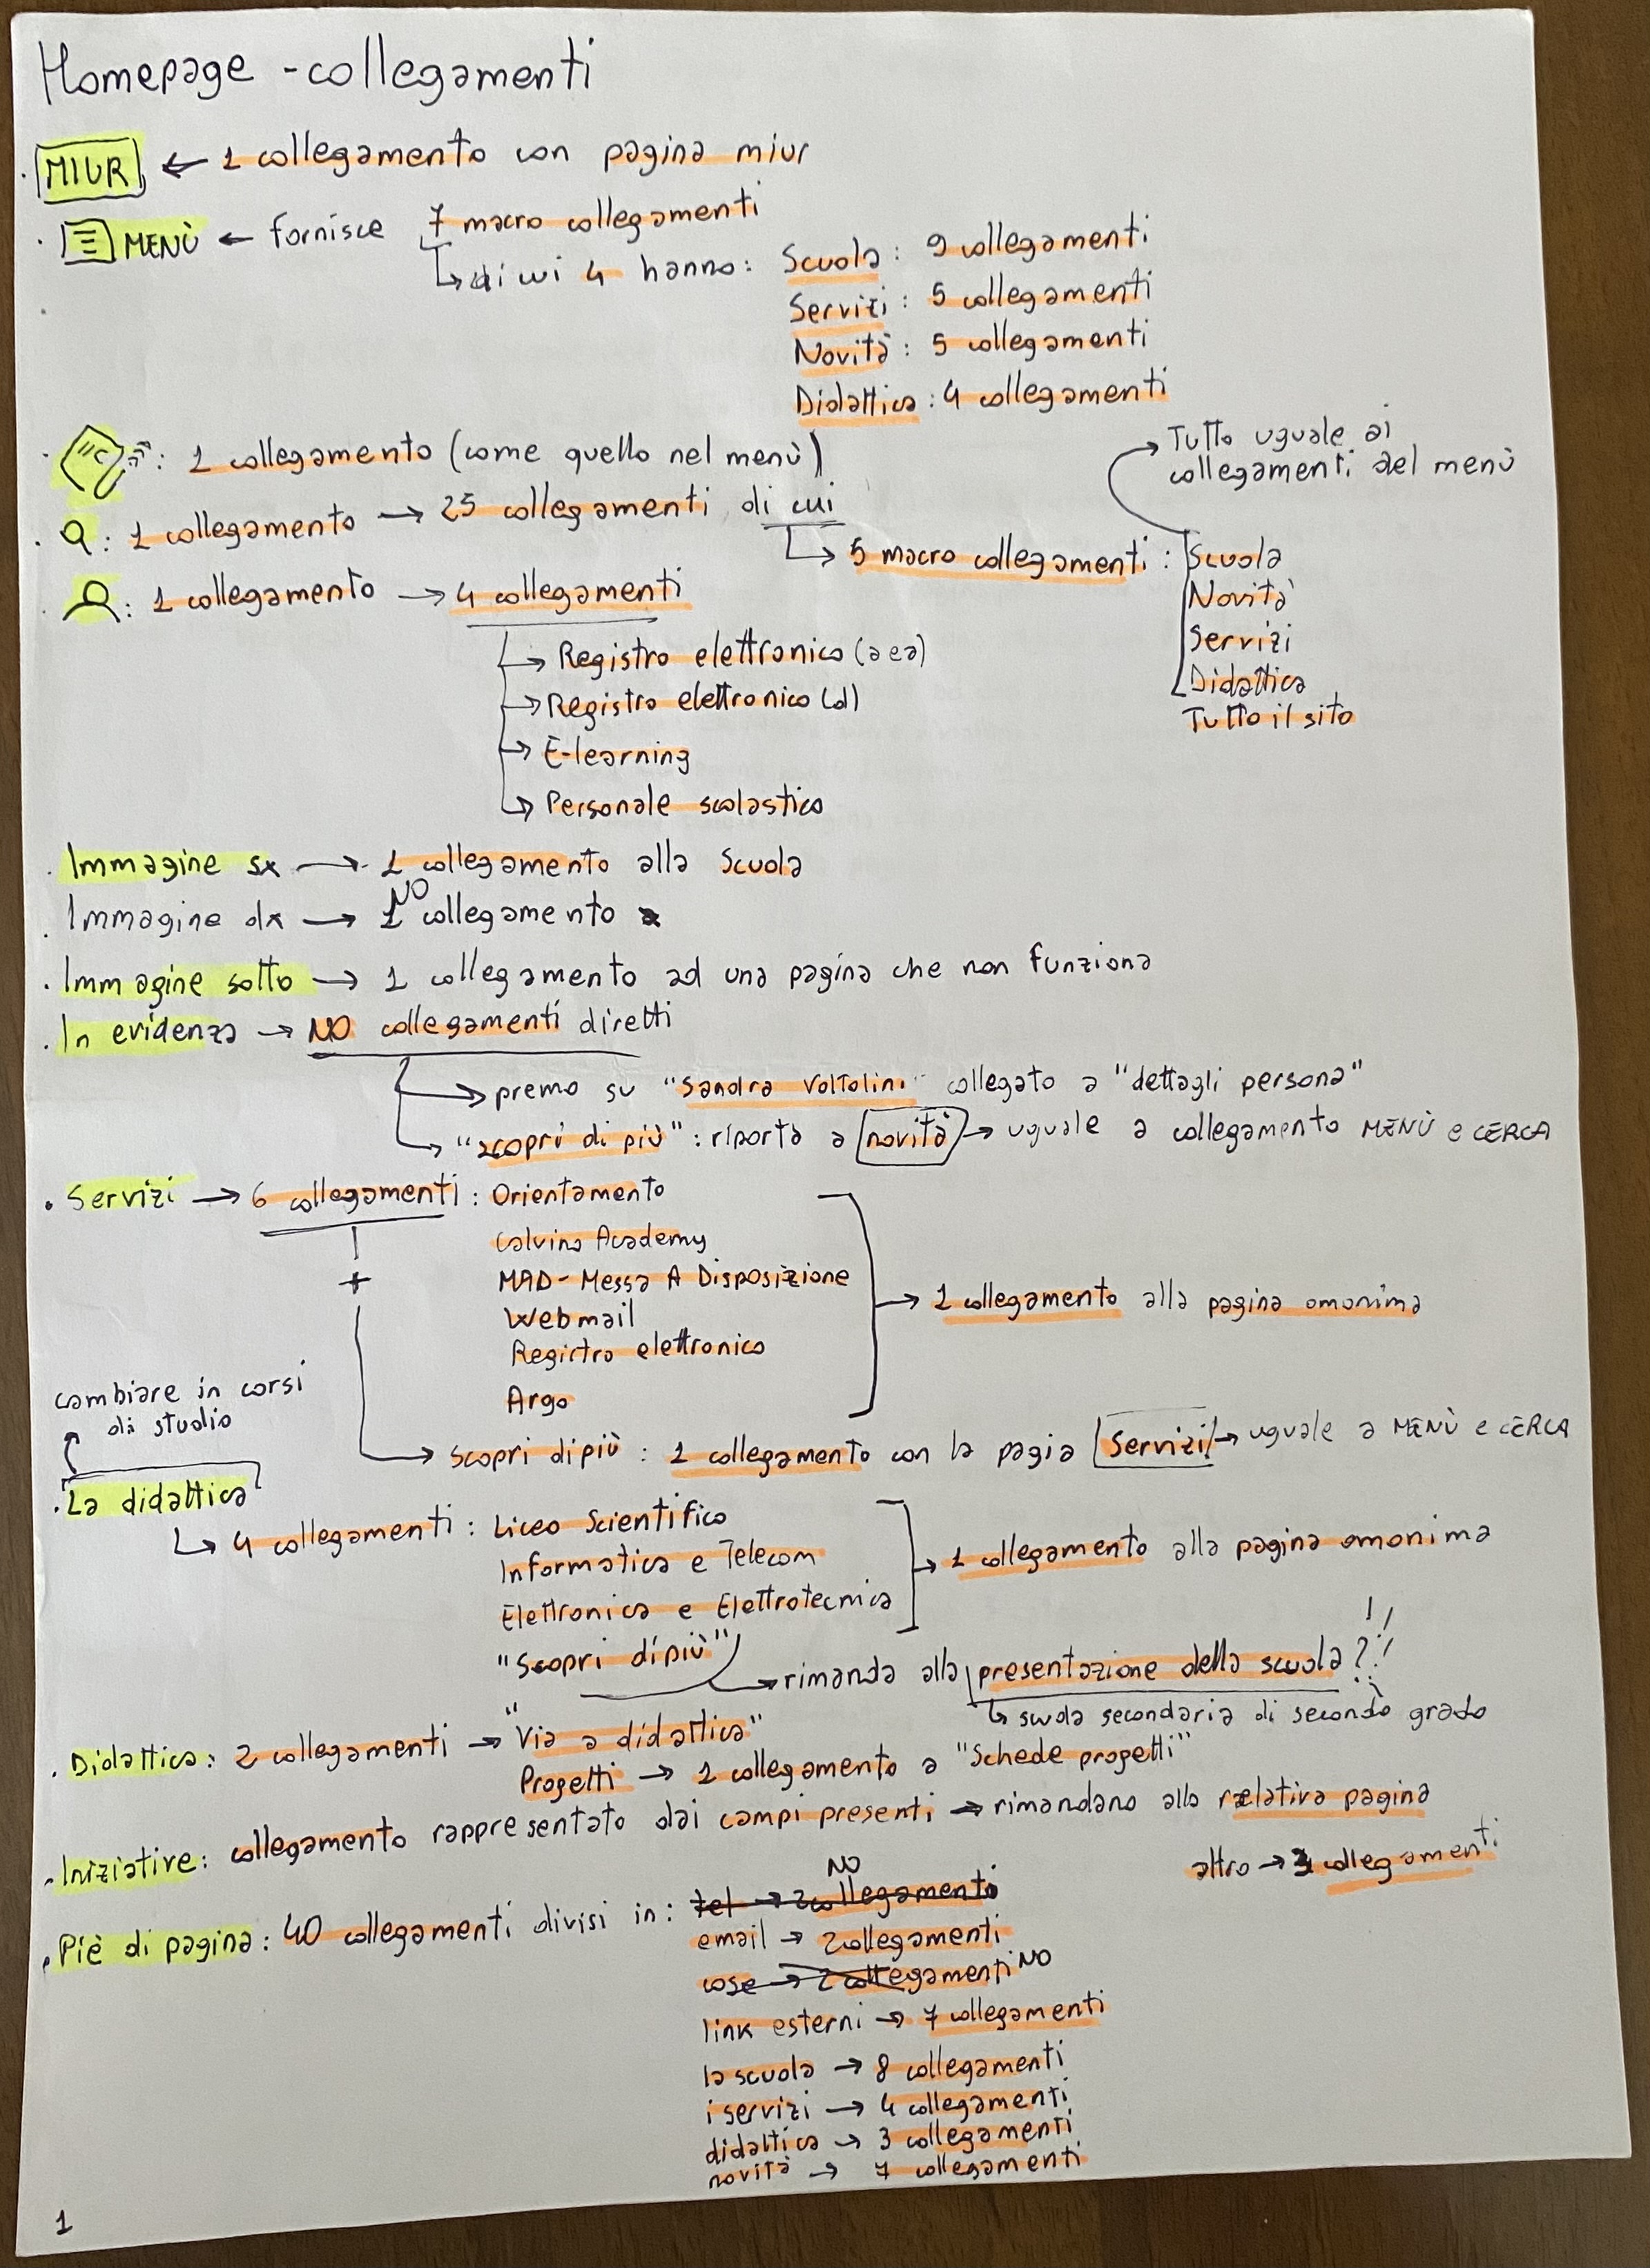 Homepage - collegamenti
. MIUR ← 1 collegamento con pagina miur
. MENÙ ← fornisce 7 macro collegamenti
↳ di cui 4 hanno: Scuola: 9 collegamenti
Servizi: 5 collegamenti
Novità: 5 collegamenti
Didattica: 4 collegamenti
. : 1 collegamento (come quello nel menù)
. : 1 collegamento → 25 collegamenti di cui
↳ 5 macro collegamenti: Scuola
Novità
Servizi
Didattica
Tutto il sito
Tutto uguale ai
collegamenti del menù
. : 1 collegamento → 4 collegamenti
→ Registro elettronico (a e a)
→ Registro elettronico (d)
→ E-learning
→ Personale scolastico
. Immagine sx → 1 collegamento alla Scuola
NO
. Immagine dx → 1 collegamento
. Immagine sotto → 1 collegamento ad una pagina che non funziona
. In evidenza → NO collegamenti diretti
→ premo su "Sandra Voltolini" collegato a "dettagli persona"
→ "scopri di più": riporta a novità → uguale a collegamento MENÙ e CERCA
. Servizi → 6 collegamenti: Orientamento
Calvino Academy
+ MAD - Messa A Disposizione
Webmail
Registro elettronico
Argo
→ 1 collegamento alla pagina omonima
→ scopri di più: 1 collegamento con la pagia Servizi → uguale a MENÙ e CERCA
cambiare in corsi
di studio
. La didattica
↳ 4 collegamenti: Liceo Scientifico
Informatica e Telecom
Elettronica e Elettrotecnica
→ 1 collegamento alla pagina omonima
"Scopri di più" → rimanda alla presentazione della scuola?!!
↳ scuola secondaria di secondo grado
. Didattica: 2 collegamenti → "Via a didattica"
Progetti → 1 collegamento a "Schede progetti"
. Iniziative: collegamento rappresentato dai campi presenti → rimandano alla relativa pagina
altro → collegamenti
NO
. Piè di pagina: 40 collegamenti divisi in: tel → 2 collegamento
email → 2 collegamenti
cose → 2 collegamenti NO
link esterni → 7 collegamenti
la scuola → 8 collegamenti
i servizi → 4 collegamenti
didattica → 3 collegamenti
novità → 7 collegamenti
1